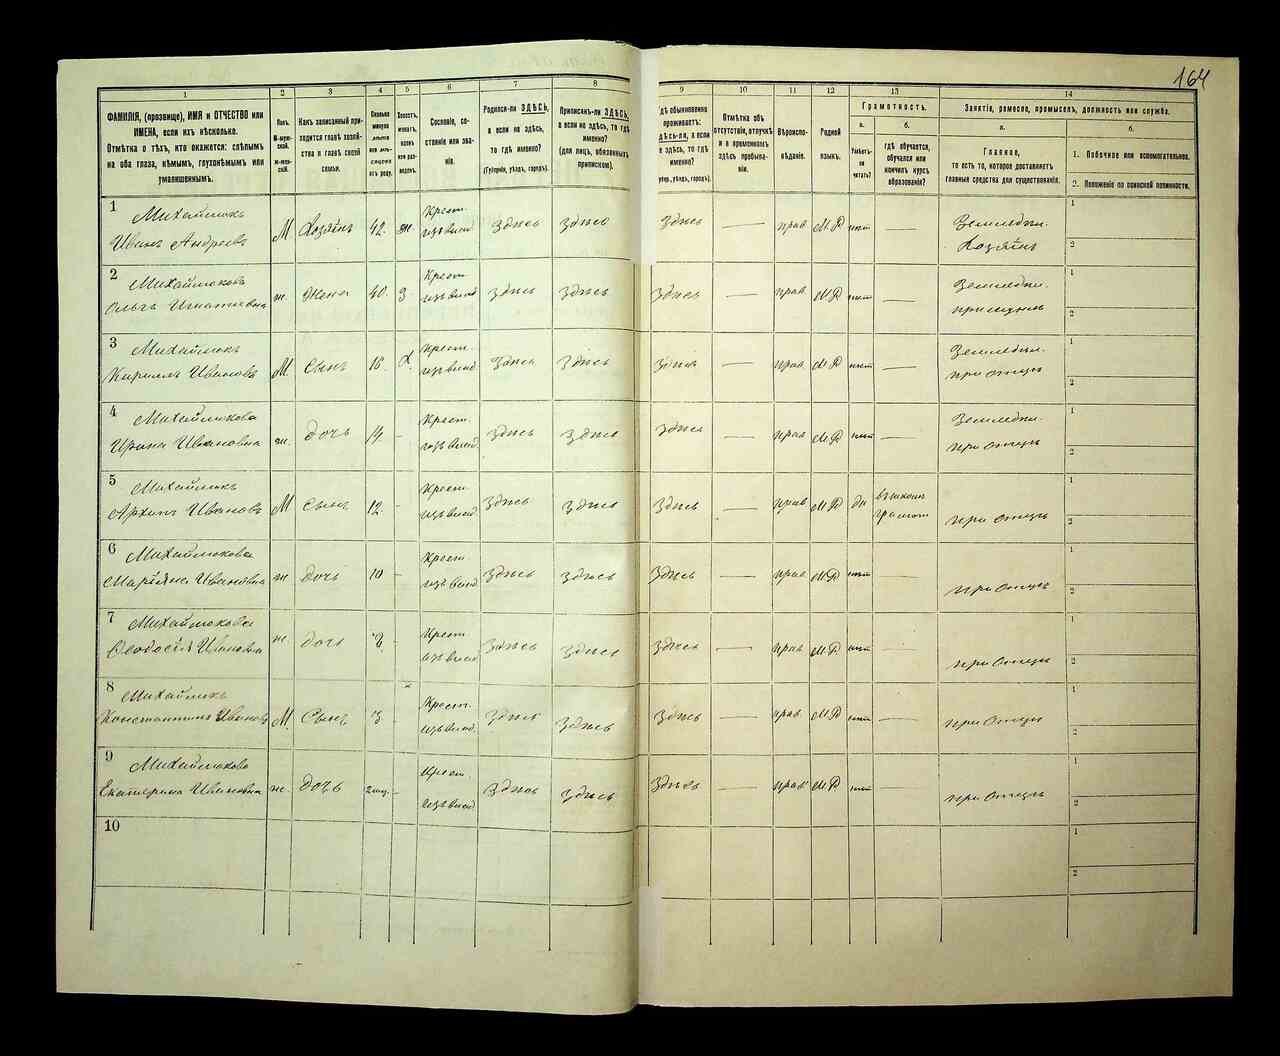 164
1 2 3 4 5 6 7 8 9 10 11 12 13 14
ФАМИЛІЯ, (прозвище), ИМЯ и ОТЧЕСТВО или
ИМЕНА, если ихъ нѣсколько.
Отмѣтка о тѣхъ, кто окажется: слѣпымъ
на оба глаза, нѣмымъ, глухонѣмымъ или
умалишеннымъ.
Полъ.
М-мужской.
Ж-женскій.
Какъ записанный приходится
главѣ хозяйства
и главѣ своей
семьи.
Сколько
минуло
лѣтъ
или мѣсяцевъ
отъ роду.
Холостъ,
женатъ,
вдовъ
или разведенъ.
Сословіе, состояніе
или званіе.
Родился-ли ЗДѢСЬ,
а если не здѣсь,
то гдѣ именно?
(Губернія, уѣздъ, городъ).
Приписанъ-ли ЗДѢСЬ,
а если не здѣсь, то гдѣ
именно?
(для лицъ, обязанныхъ
припискою).
Гдѣ обыкновенно
проживаетъ:
здѣсь-ли, а если
не здѣсь, то гдѣ
именно?
(Губер., уѣздъ, городъ).
Отмѣтка объ
отсутствіи, отлучкѣ
и о временномъ
здѣсь пребываніи.
Вѣроисповѣданіе.
Родной
языкъ.
Грамотность.
а.
Умѣетъ-ли
читать?
б.
гдѣ обучается,
обучался или
кончилъ курсъ
образованія?
Занятіе, ремесло, промыселъ, должность или служба.
а.
Главное,
то есть то, которое доставляетъ
главныя средства для существованія.
б.
1. Побочное или вспомогательное.
2. Положеніе по воинской повинности.
1 Михайлюкъ
Иванъ Андреевъ М Хозяинъ 42. ж. Крест. изъ влад. Здѣсь Здѣсь Здѣсь — прав М Р нѣт — Земледѣл. Хозяинъ 1 2
2 Михайлюкова
Ольга Игнатьевна ж. Жена 40. З. Крест. изъ влад. Здѣсь Здѣсь Здѣсь — прав. М Р нѣт — Земледѣл. при мужѣ 1 2
3 Михайлюкъ
Кириллъ Ивановъ М. Сынъ 16. Х. Крест. изъ влад. Здѣсь Здѣсь Здѣсь — прав. М Р нѣт — Земледѣл. при отцѣ 1 2
4 Михайлюкова
Ирина Ивановна ж. дочь 14 - Крест. изъ влад. Здѣсь Здѣсь Здѣсь — прав М Р нѣт — Земледѣл. при отцѣ 1 2
5 Михайлюкъ
Архипъ Ивановъ М Сынъ 12. - Крест. изъ влад. Здѣсь Здѣсь Здѣсь — прав М Р да въ школѣ грамот при отцѣ 1 2
6 Михайлюкова
Маріяна Ивановна ж дочь 10 - Крест. изъ влад. Здѣсь Здѣсь Здѣсь — прав М Р нѣт — при отцѣ 1 2
7 Михайлюкова
Ѳеодосія Ивановна ж. дочь - Крест. изъ влад. Здѣсь Здѣсь Здѣсь — прав М Р нѣт — при отцѣ 1 2
8 Михайлюкъ
Константинъ Ивановъ М. Сынъ 3 - Крест. изъ влад. Здѣсь Здѣсь Здѣсь — прав М Р нѣт — при отцѣ 1 2
9 Михайлюкова
Екатерина Ивановна ж. дочь - Крест. изъ влад Здѣсь Здѣсь Здѣсь — прав М Р нѣт — при отцѣ 1 2
10 1 2